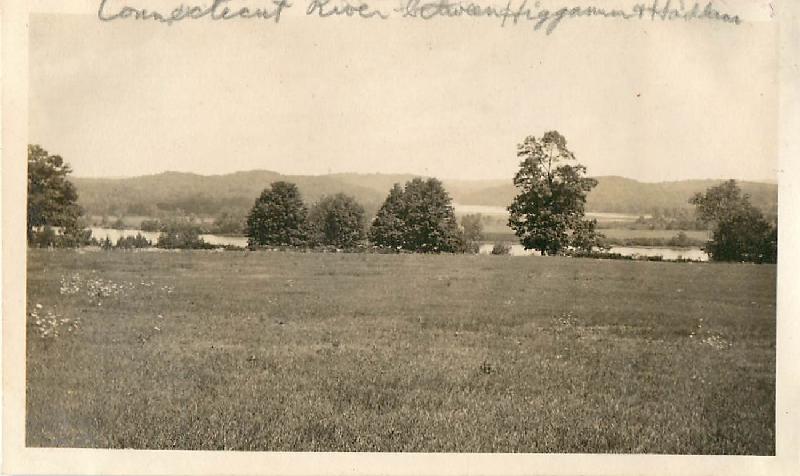 Connecticut River between Higganum & Haddam